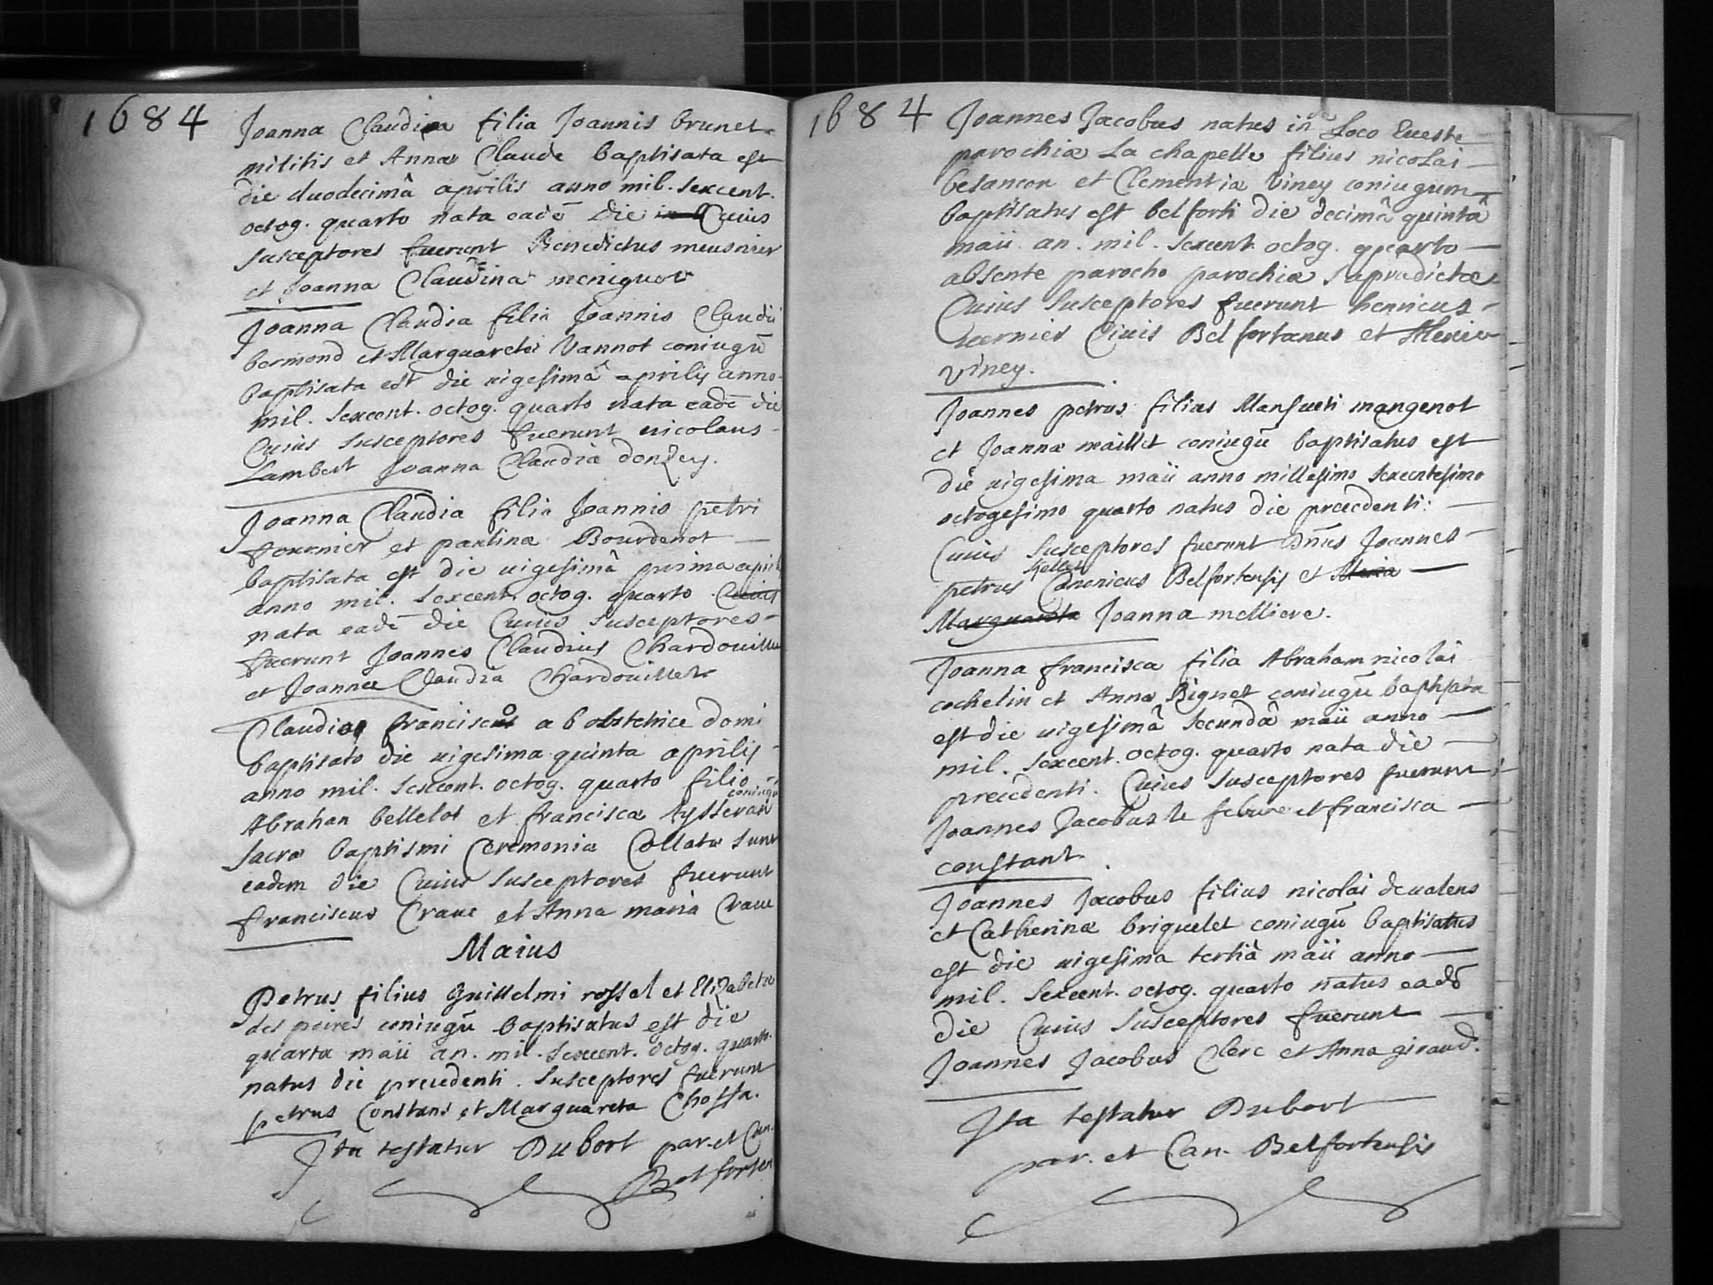 1684
Joanna Claudina filia Joannis brunet
militis et Annæ Claude baptisata est
die duodecimâ aprilis anno mil. sexcent.
octog. quarto nata eadē die Cuius
susceptores fuerunt Benedictus meusnier
et Joanna Claudina meniguot
Joanna Claudia filia Joannis Claudii
bermond et Marguaretæ Vannot coniugū
baptisata est die vigesimâ aprilis anno
mil. sexcent. octog. quarto nata eadē die
Cuius susceptores fuerunt nicolaus
Lambert Joanna Claudia donzey.
Joanna Claudia filia Joannis petri
fournier et paulinæ Bourdenot
baptisata est die vigesimâ prima april
anno mil. sexcent. octog. quarto Cuius
nata eadē die Cuius susceptores
fuerunt Joannes Claudius Chardouillet
et Joanna Claudia Chardouillet
Claudio francisco ab obstetrice domi
baptisato die vigesima quinta aprilis
anno mil. sexcent. octog. quarto filio
Abrahan bellelot et francisca coniugū
sacræ baptismi Ceremoniæ Collatæ sunt
eadem die Cuius susceptores fuerunt
franciscus Crave et Anna maria Crave
Maius
Petrus filius Guillelmi rossel et Elizabetæ
des poires coniugū baptisatus est die
quarta maii an. mil. sexcent. octog. quarto.
natus die precedenti. susceptores fuerunt
petrus Constans et Marguareta Chossa.
Ita testatur Dubort par. et Can.
Belforten
1684
Joannes Jacobus natus in Loco Eueste
parochiæ La chapelle filius nicolai
besancon et Clementia Viney coniugum
baptisatus est belforti die decimâ quintâ
maii an. mil. sexcent. octog. quarto
absente parocho parochiæ supradictæ
Cuius susceptores fuerunt henricus
Civis Belfortanus et
Viney.
Joannes petrus filius Mansueti mangenot
et Joannæ maillet coniugū baptisatus est
die vigesima maii anno millesimo sexcentesimo
octogesimo quarto natus die precedenti.
Cuius susceptores fuerunt dn̄us Joannes
petrus Canonicus Belfortensis et Maria
Marguareta Joanna melliere.
Joanna francisca filia Abraham nicolai
cochelin et Annæ Bignet coniugū baptisata
est die vigesimâ secundâ maii anno
mil. sexcent. octog. quarto nata die
precedenti. Cuius susceptores fuerunt
Joannes Jacobus le febure et francisca
constant
Joannes Jacobus filius nicolai devalens
et Catherinæ briquelet coniugū baptisatus
est die vigesima tertiâ maii anno
mil. sexcent. octog. quarto natus eadē
die Cuius susceptores fuerunt
Joannes Jacobus Clerc et Anna giraud.
Ita testatur Dubort
par. et Can. Belfortensis